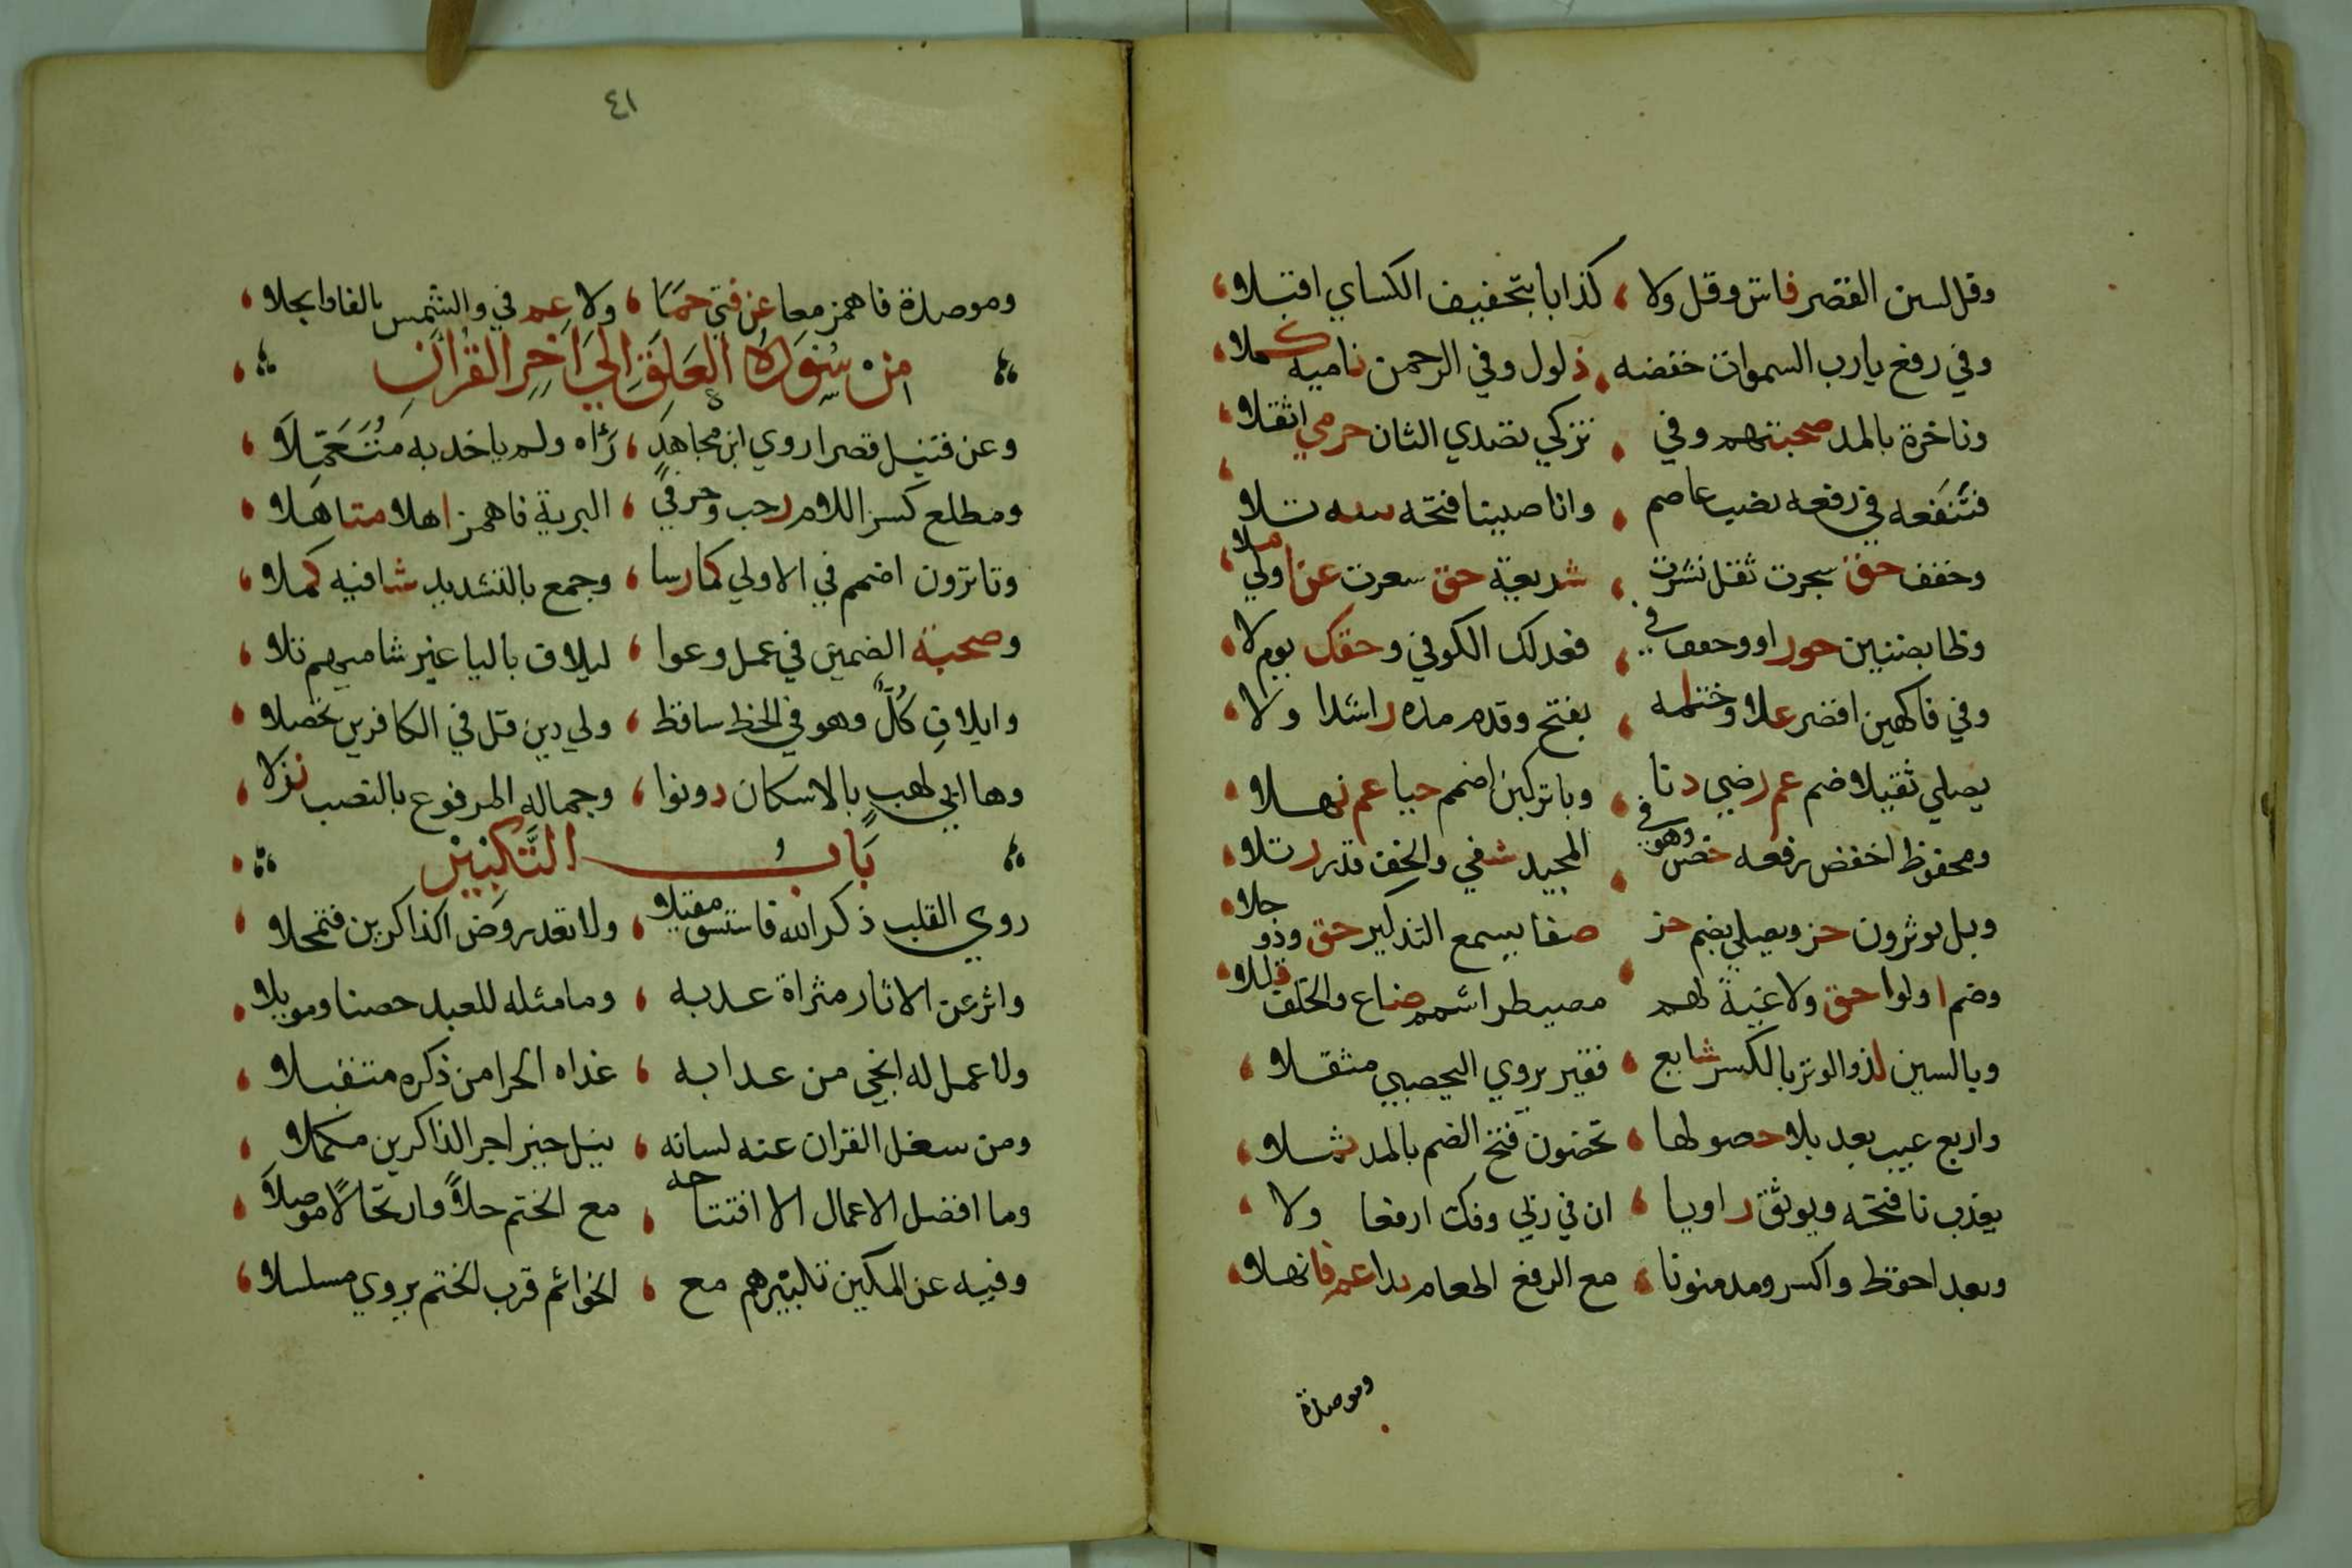 وقل لبين القصر فاش وقل ولا كذابا بتخفيف الكساي اقبلا
وفي رفع يا رب السموات خفضه ذلول وفي الرحمن ناميه كملا
وناخرة بالمد صحبتهم وفي تزكي تصدي الثان حرمي اثقلا
فتنفعه في رفعه نصب عاصم وانا صببنا فتحه ثبته تلا
وخفف حق سجرت ثقل نشرت شريعة حق سعرت عن اولي ملا
وظا بضنين حق راو وخفف في فعدلك الكوفي وحقك يوم لا
وفي فاكهين اقصر علا وختامه بفتح وقدم مده راشدا ولا
يصلي ثقيلا ضم عم رضي دنا وبا تركبن اضمم حيا عم نهلا
ومحفوظ اخفض رفعه خص وهو في المجيد شفي والخف قدر رتلا
وبل يوثرون حز ويصلي بضم حز صفا يسمع التذكير حق وذو جلا
وضم اولوا حق ولاغية لهم مصيطر اشمم ضاع والخلف قللا
وبالسين لذ والوتر بالكسر شايع فقدر يروي اليحصبي مثقلا
واربع غيب بعد بلا حصولها تحضون فتح الضم بالمد ثملا
يعذب نافتحه ويوثق راويا ان في ربي وفك ارفعا ولا
وبعد احفظ واكسر ومد منونا مع الرفع اطعام ندا عم فانهلا
وموصدة
٤١
وموصدة فاهمز معا عن فتي حما ولا عم في والشمس بالفا وانجلا
من سورة العلق الى اخر القران
وعن قنبل قصرا روي ابن مجاهد رءاه ولم ياخذ به متعملا
ومطلع كسر اللام رحب وحرفي البرية فاهمز اهلا متاهلا
وتا ترون اضمم في الاولي كما رسا وجمع بالتشديد شافيه كملا
وصحبة الضمين في عمد وعوا لايلاف باليا غير شاميهم تلا
وايلاف كل وهو في الخط ساقط ولي دين قل في الكافرين تحصلا
وها ابي لهب بالاسكان دونوا وحمالة المرفوع بالنصب نزلا
باب التكبير
روي القلب ذكر الله فاستسق مقبلا ولا تعد روض الذاكرين فتمحلا
واثر عن الاثار مثراة عذبه وما مثله للعبد حصنا وموئلا
ولا عمل له انجي من عذابه غداه الجزا من ذكره متقبلا
ومن شغل القران عنه لسانه ينل خير اجر الذاكرين مكملا
وما افضل الاعمال الا افتتاحه مع الختم حلا وارتحالا موصلا
وفيه عن المكين تكبيرهم مع الخواتم قرب الختم يروي مسلسلا